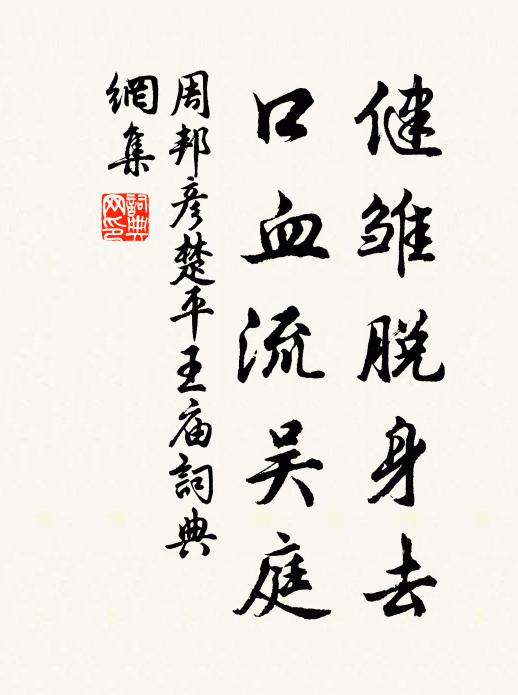 健雏脱身去
口血流吴庭
周邦彦楚平王庙詞典
網集
詞典网印